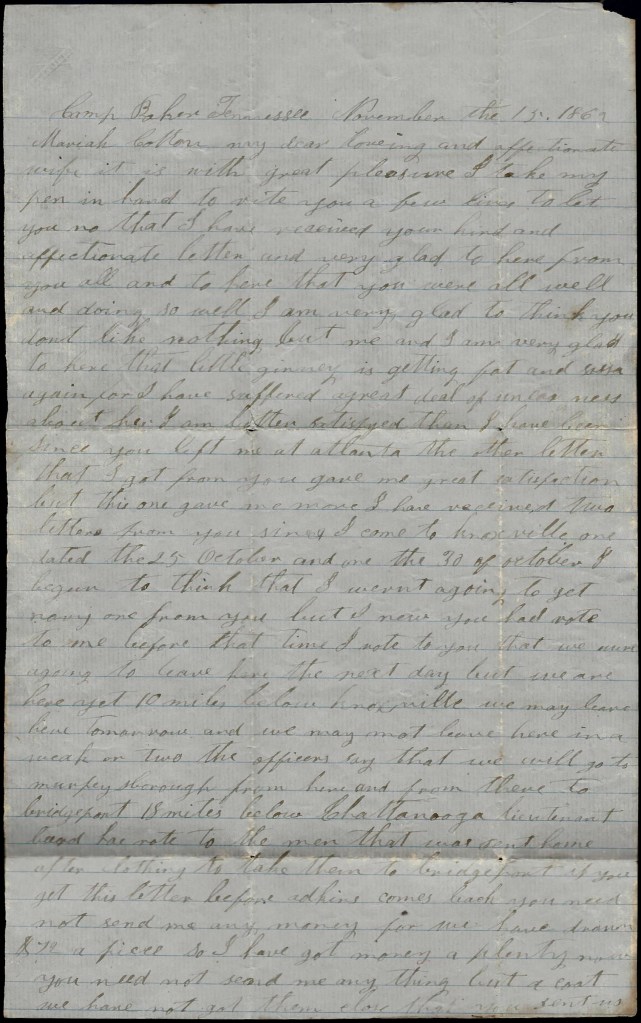 Camp Baker Tennessee November the 15. 1862
Mariah Cotton my dear loveing and affectionate
wife it is with great pleasure I take my
pen in hand to rite you a few lines to let
you no that I have received your kind and
affectionate letter and very glad to here from
you all and to here that you were all well
and doing so well I am very glad to think you
dont like nothing but me and I am very glad
to here that little ginney is getting fat and
again for I have suffered a great deal of uneas ness
about her I am better satisfyed than I have been
since you left me at atlanta the other letter
that I got from you gave me great satisfaction
but this one gave me more I have received two
letters from you since I come to knoxville one
dated the 25 October and one the 30 of october I
begun to think that I wernt agoing to get
nary one from you but I now you had rote
to me before that time I rote to you that we ware
agoing to leave here the next day but we are
here yet 10 miles below knoxville we may leave
here tomorrow and we may not leave here in a
weak or two the officers say that we will go to
murpeysborough from here and from there to
bridgeport 18 miles below Chattanooga lieutenant
has rote to the men that was sent home
after clothing to take them to bridgeport if you
get this letter before adkins comes back you need
not send me any money for we have drawn
a piece so I have got money a plenty now
you need not send me any thing but a coat
we have not got them close that you sent us